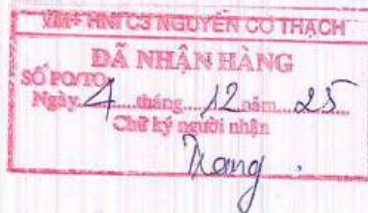 VM+ HNI C3 NGUYỄN CƠ THẠCH
ĐÃ NHẬN HÀNG
SỐ PO/TO
Ngày 4 tháng 12 năm 25
Chữ ký người nhận
Trang.